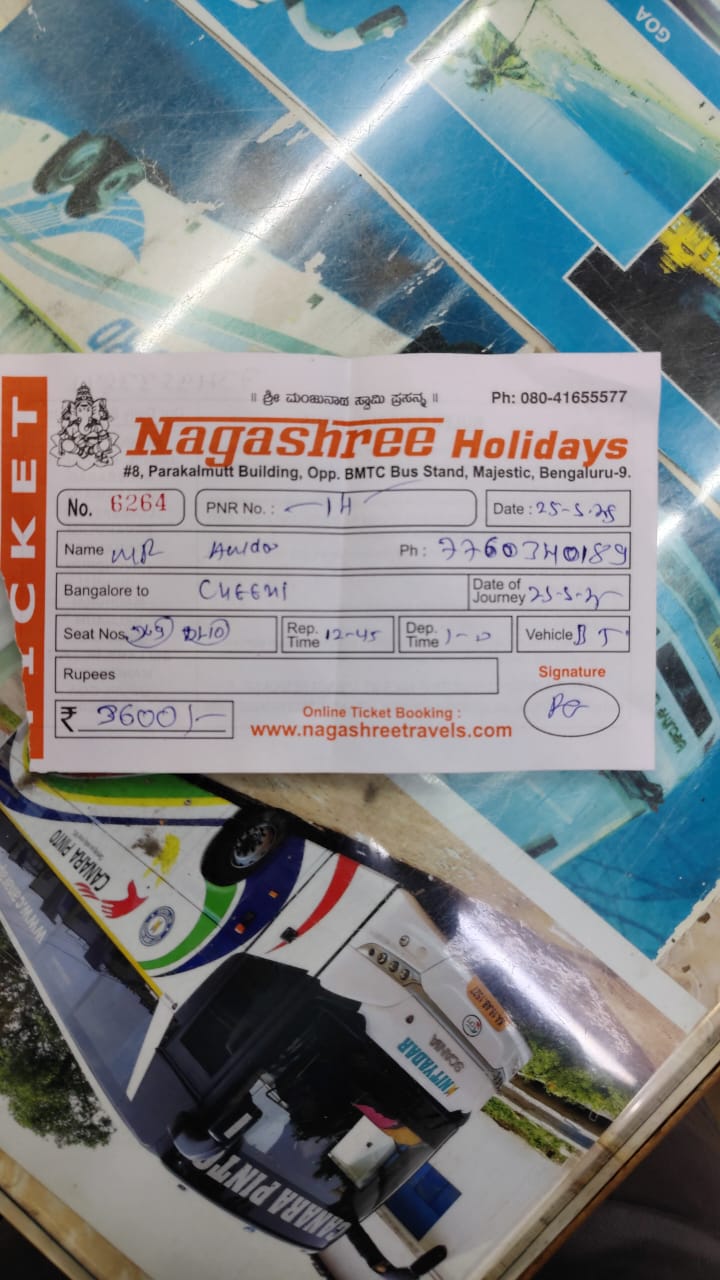 GOA
TICKET
॥ ಶ್ರೀ ಮಂಜುನಾಥ ಸ್ವಾಮಿ ಪ್ರಸನ್ನ ॥ Ph: 080-41655577
Nagashree Holidays
#8, Parakalmutt Building, Opp. BMTC Bus Stand, Majestic, Bengaluru-9.
No. 6264 PNR No.: Date: 25-5-25
Name MR Ph: 7760340189
Bangalore to
Date of Journey 25-5-25
Seat Nos. Rep. Time 12-45 Dep. Time Vehicle
Rupees Signature
₹ 3600/-
Online Ticket Booking :
www.nagashreetravels.com
CANARA PINTO
NITYADAR
SCANIA
CANARA PINTO